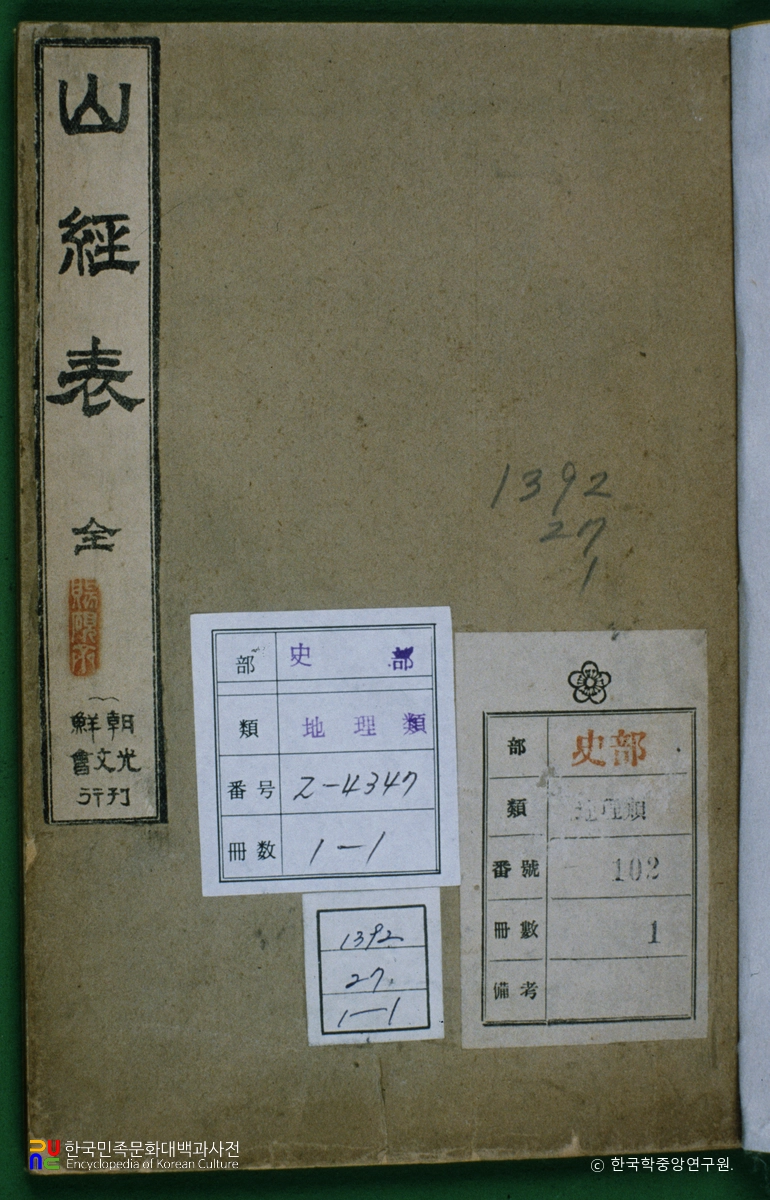 山經表 全
朝鮮
光文會
刊行
1392
27
1
部 史部
類 地理類
番号 2-4347
冊数 1-1
1392
27
1-1
部 史部
類 地理類
番號 102
冊數 1
備考
한국민족문화대백과사전
Encyclopedia of Korean Culture
© 한국학중앙연구원.